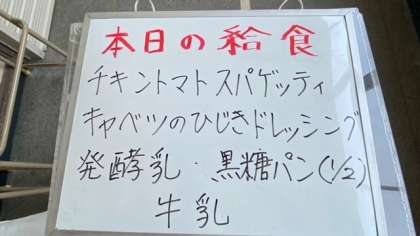 本日の給食
チキントマトスパゲッティ
キャベツのひじきドレッシング
発酵乳・黒糖パン(1/2)
牛乳